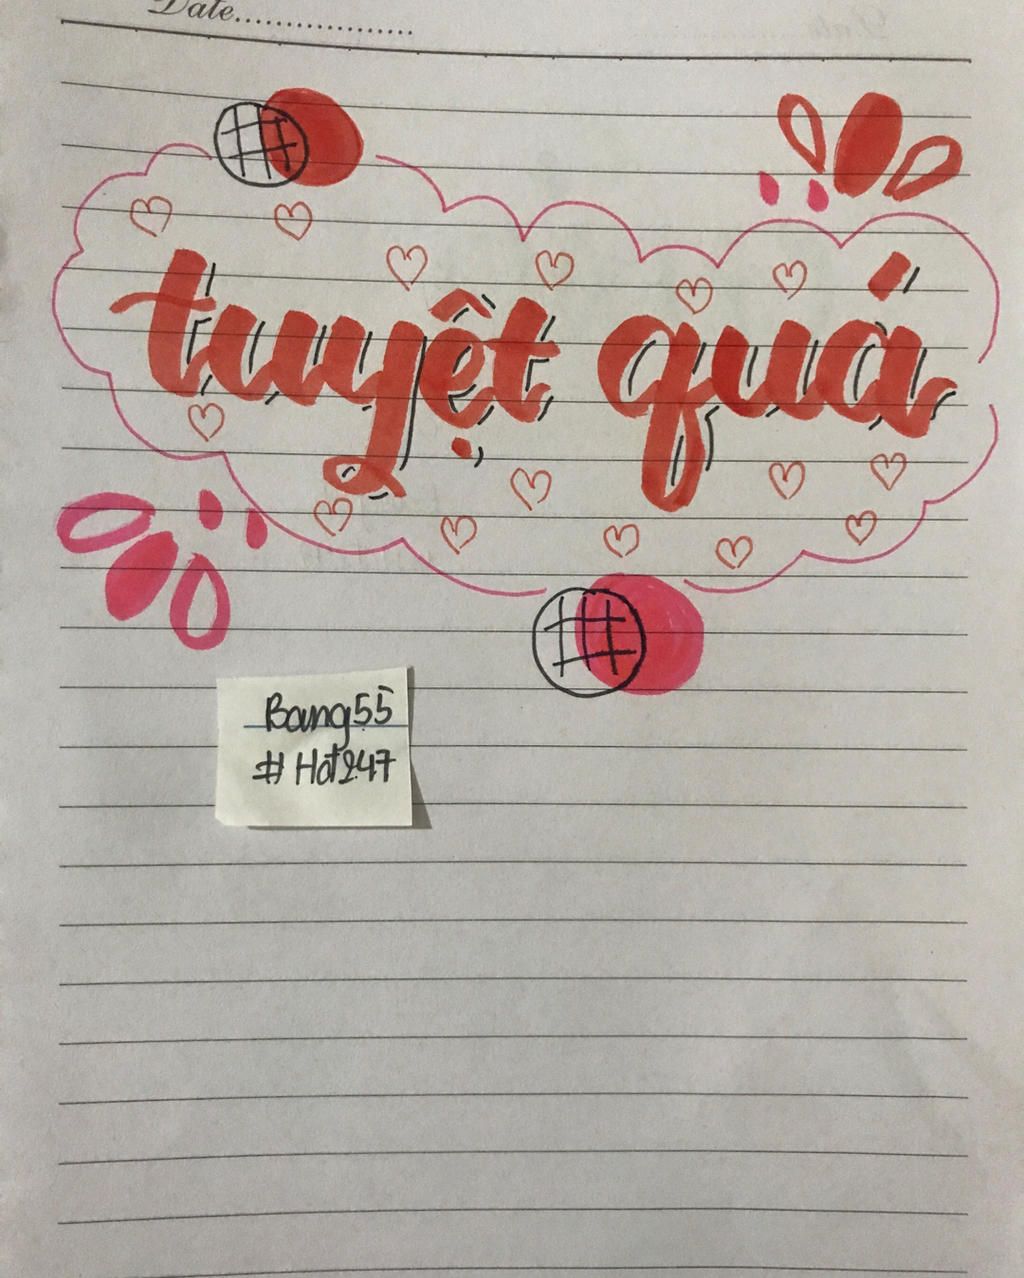 Date..................
tuyệt quá
Bang55
#Hot247